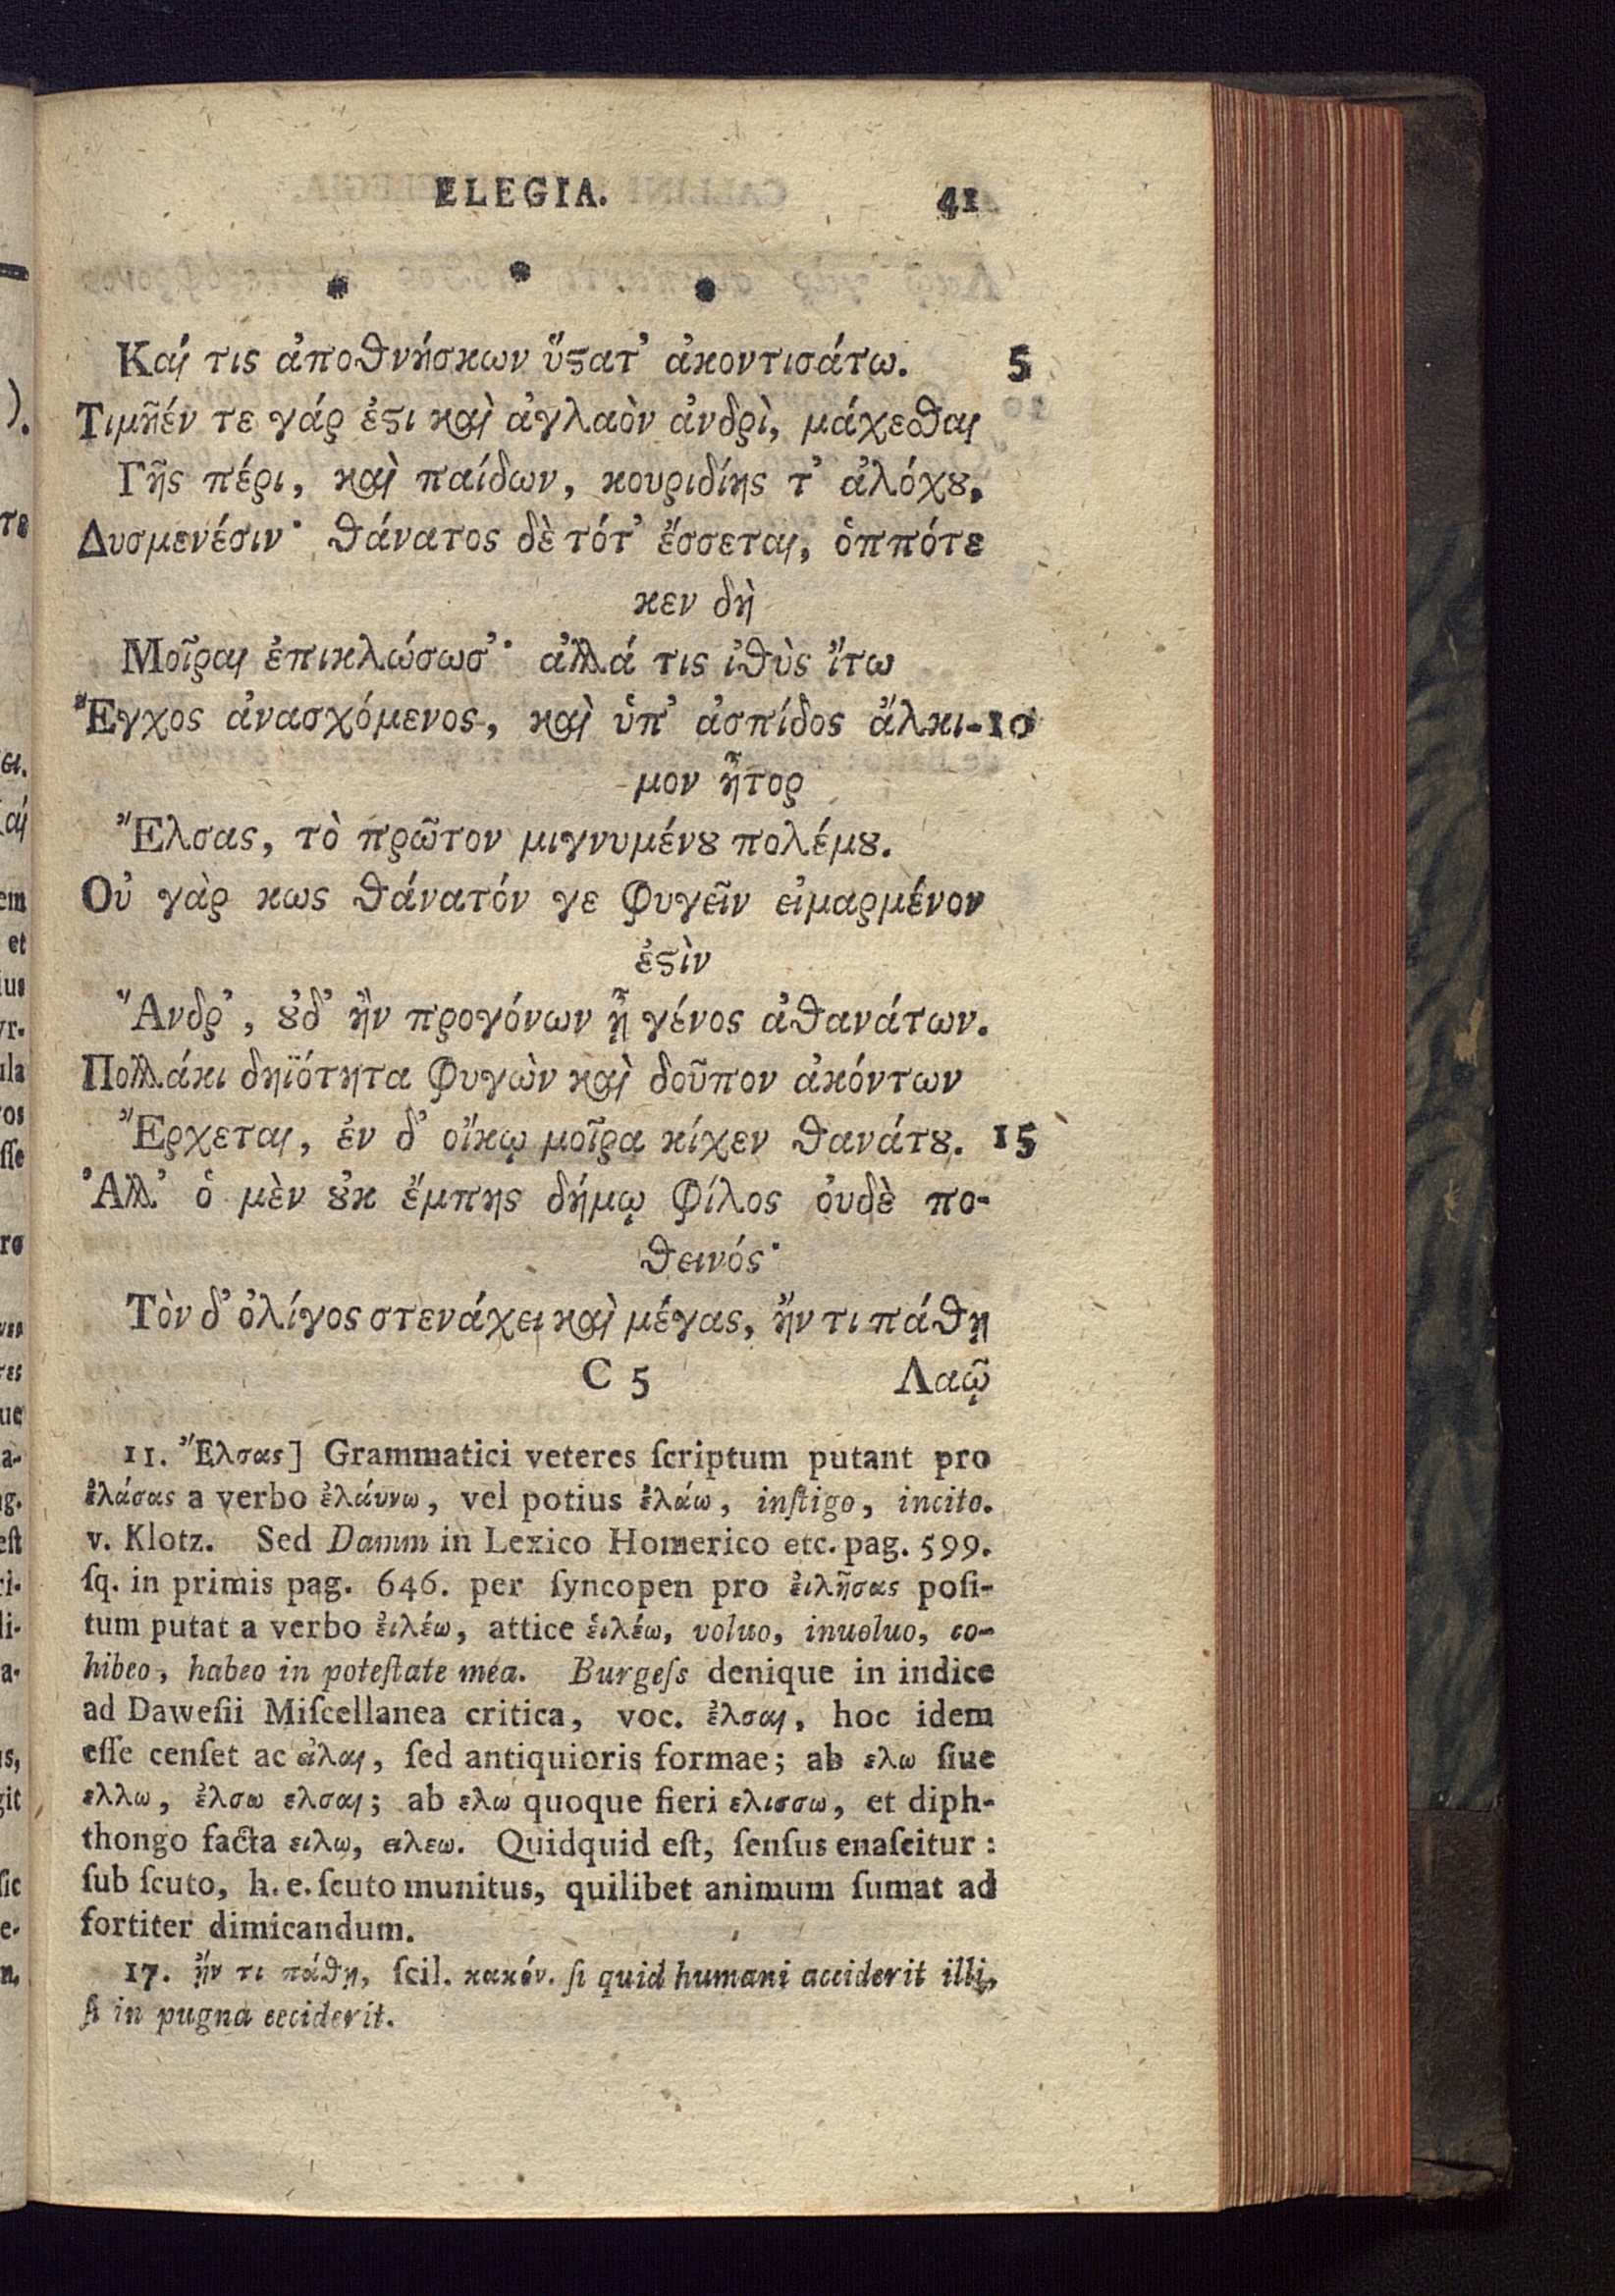 ELEGIA. 41
* * *
Καί τις ἀποθνήσκων ὕϛατ’ ἀκοντισάτω. 5
Τιμῆέν τε γάρ ἐϛι καὶ ἀγλαὸν ἀνδρὶ, μάχεσθαι
Γῆς πέρι, καὶ παίδων, κουριδίης τ’ ἀλόχȣ,
Δυσμενέσιν· θάνατος δὲ τότ’ ἔσσεται, ὁππότε
κεν δὴ
Μοῖραι ἐπικλώσωσ’· ἀλλά τις ἰθὺς ἴτω
Ἔγχος ἀνασχόμενος, καὶ ὑπ’ ἀσπίδος ἄλκι- 10
μον ἦτορ
Ἔλσας, τὸ πρῶτον μιγνυμένȣ πολέμȣ.
Οὐ γὰρ κως θάνατόν γε φυγεῖν εἱμαρμένον
ἐϛὶν
Ἄνδρ’, ȣ̓δ’ ἢν προγόνων ᾖ γένος ἀθανάτων.
Πολλάκι δηϊότητα φυγὼν καὶ δοῦπον ἀκόντων
Ἔρχεται, ἐν δ’ οἴκῳ μοῖρα κίχεν θανάτȣ. 15
Ἀλλ’ ὁ μὲν ȣ̓κ ἔμπης δήμῳ φίλος ὀυδὲ πο-
θεινός·
Τὸν δ’ ὀλίγος στενάχει καὶ μέγας, ἤν τι πάθῃ
C 5 Λαῷ
11. Ἔλσας] Grammatici veteres ſcriptum putant pro
ἐλάσας a verbo ἐλάυνω, vel potius ἐλάω, inſtigo, incito.
v. Klotz. Sed Damm in Lexico Homerico etc. pag. 599.
ſq. in primis pag. 646. per ſyncopen pro ἐιλῆσας poſi-
tum putat a verbo ἐιλέω, attice ἑιλέω, voluo, inuoluo, co-
hibeo, habeo in poteſtate mea. Burgeſs denique in indice
ad Daweſii Miſcellanea critica, voc. ἐλσαι, hoc idem
eſſe cenſet ac ἀλαι, ſed antiquioris formae; ab ελω ſiue
ελλω, ἐλσω ελσαι; ab ελω quoque fieri ελισσω, et diph-
thongo facta ειλω, ειλεω. Quidquid eſt, ſenſus enaſcitur:
ſub ſcuto, h. e. ſcuto munitus, quilibet animum ſumat ad
fortiter dimicandum.
17. ἤν τι πάθῃ, ſcil. κακόν. ſi quid humani acciderit illi,
ſi in pugna ceciderit.